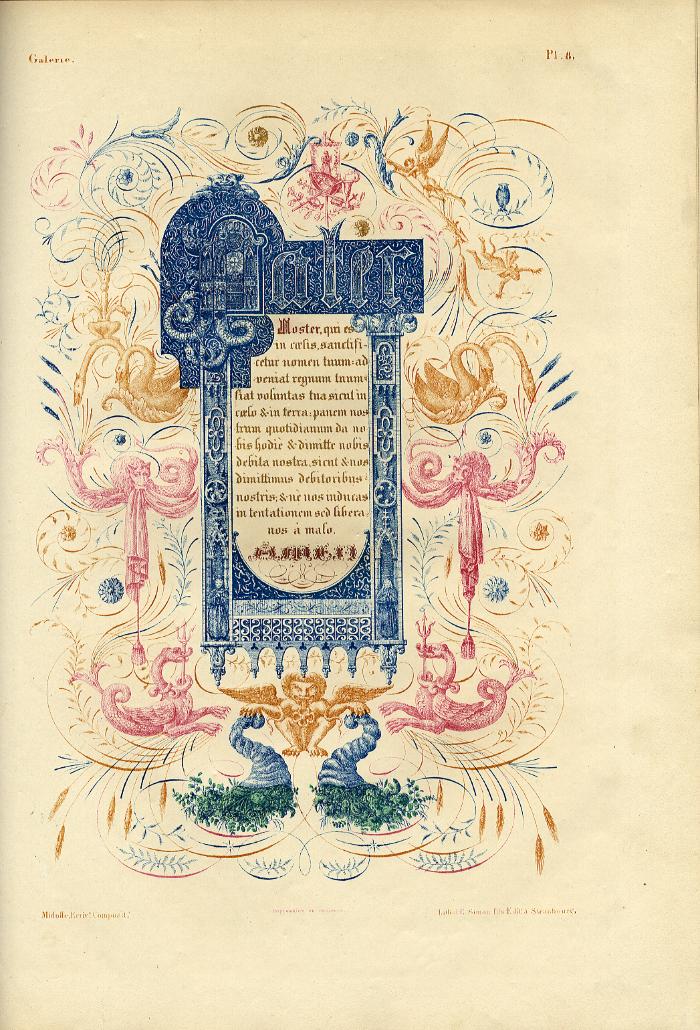 Galerie.
Pl. 8.
Pater
Noster, qui es
in cœlis, sanctifi-
cetur nomen tuum: ad
veniat regnum tuum:
fiat voluntas tua sicut in
cœlo & in terra: panem nos
trum quotidianum da no
bis hodie & dimitte nobis
debita nostra, sicut & nos
dimittimus debitoribus
nostris; & ne nos inducas
in tentationem sed libera
nos à malo.
Amen
Midolle, Ecriv.n Composit.r
Lithog. E. Simon fils Edit. à Strasbourg.